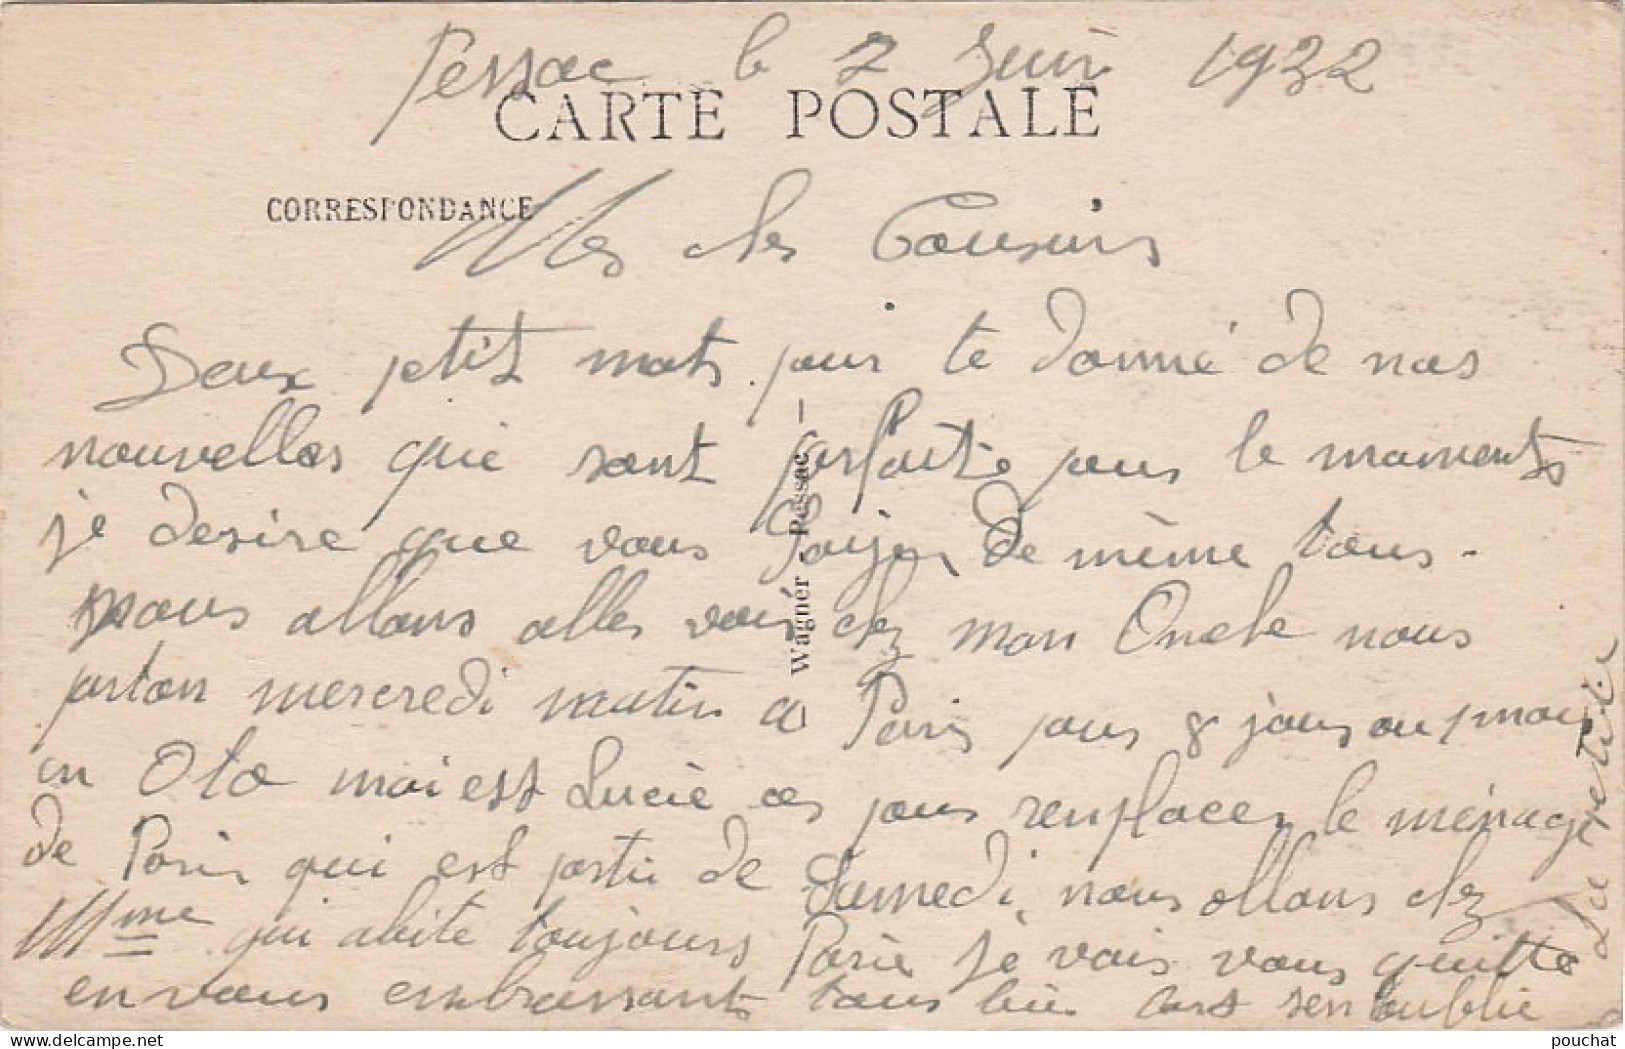 Pessac le 2 Juin 1932
CARTE POSTALE
CORRESPONDANCE
Mes cher Cousins
Deux petit mots pour te donné de nos
nouvelles qui sont parfaite pour le moments
je desire que vous Soiyer de même tous -
nous allons alles voir chez mon Oncle nous
parton mercredi matin a Paris pour 8 jours ou 1 mois
en Oto moi est Lucie pour remplacer le ménage
de Paris qui est parti de Samedi nous allons chez
Mme qui abite toujours Paris je vais vous quitte
en vous embrassant tous bien sens oublie
La petite
Wagner - Pessac -
delcampe.net
pouchat